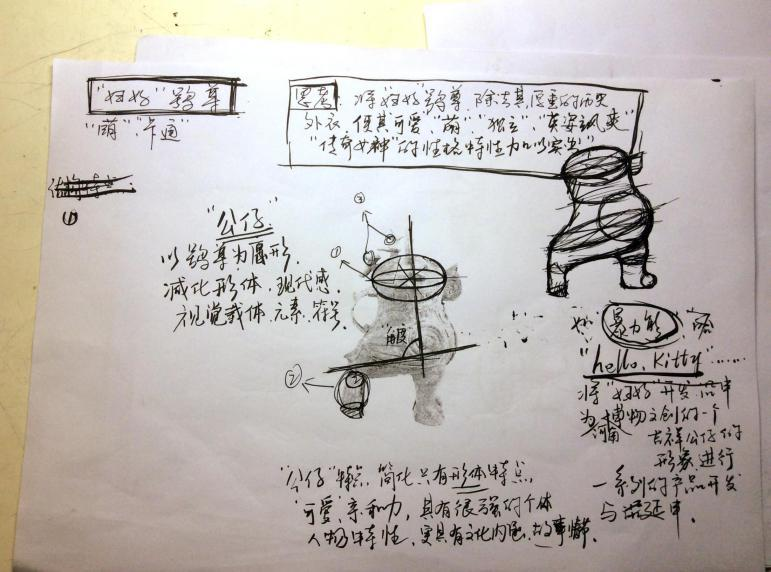 "妇好"鸮尊
"萌"、"卡通"
①
思考: 将"妇好"鸮尊,除去其厚重的历史
外衣,使其可爱、"萌"、"独立"、"英姿飒爽"
"传奇女神"的性格特性加以突出
"公仔"
以鸮尊为原形.
减化形体、现代感.
视觉载体、元素、符号.
③
①
"角度"
②
如 暴力熊
"hello, Kitty"......
将"妇好"开发
为河南博物文创的一个
吉祥公仔的
形象、进行
一系列的产品开发
与延申.
"公仔"特点 简化只有形体特点,
"可爱"、亲和力, 具有很强的个体
人物特性、更具有文化内涵、故事情节.